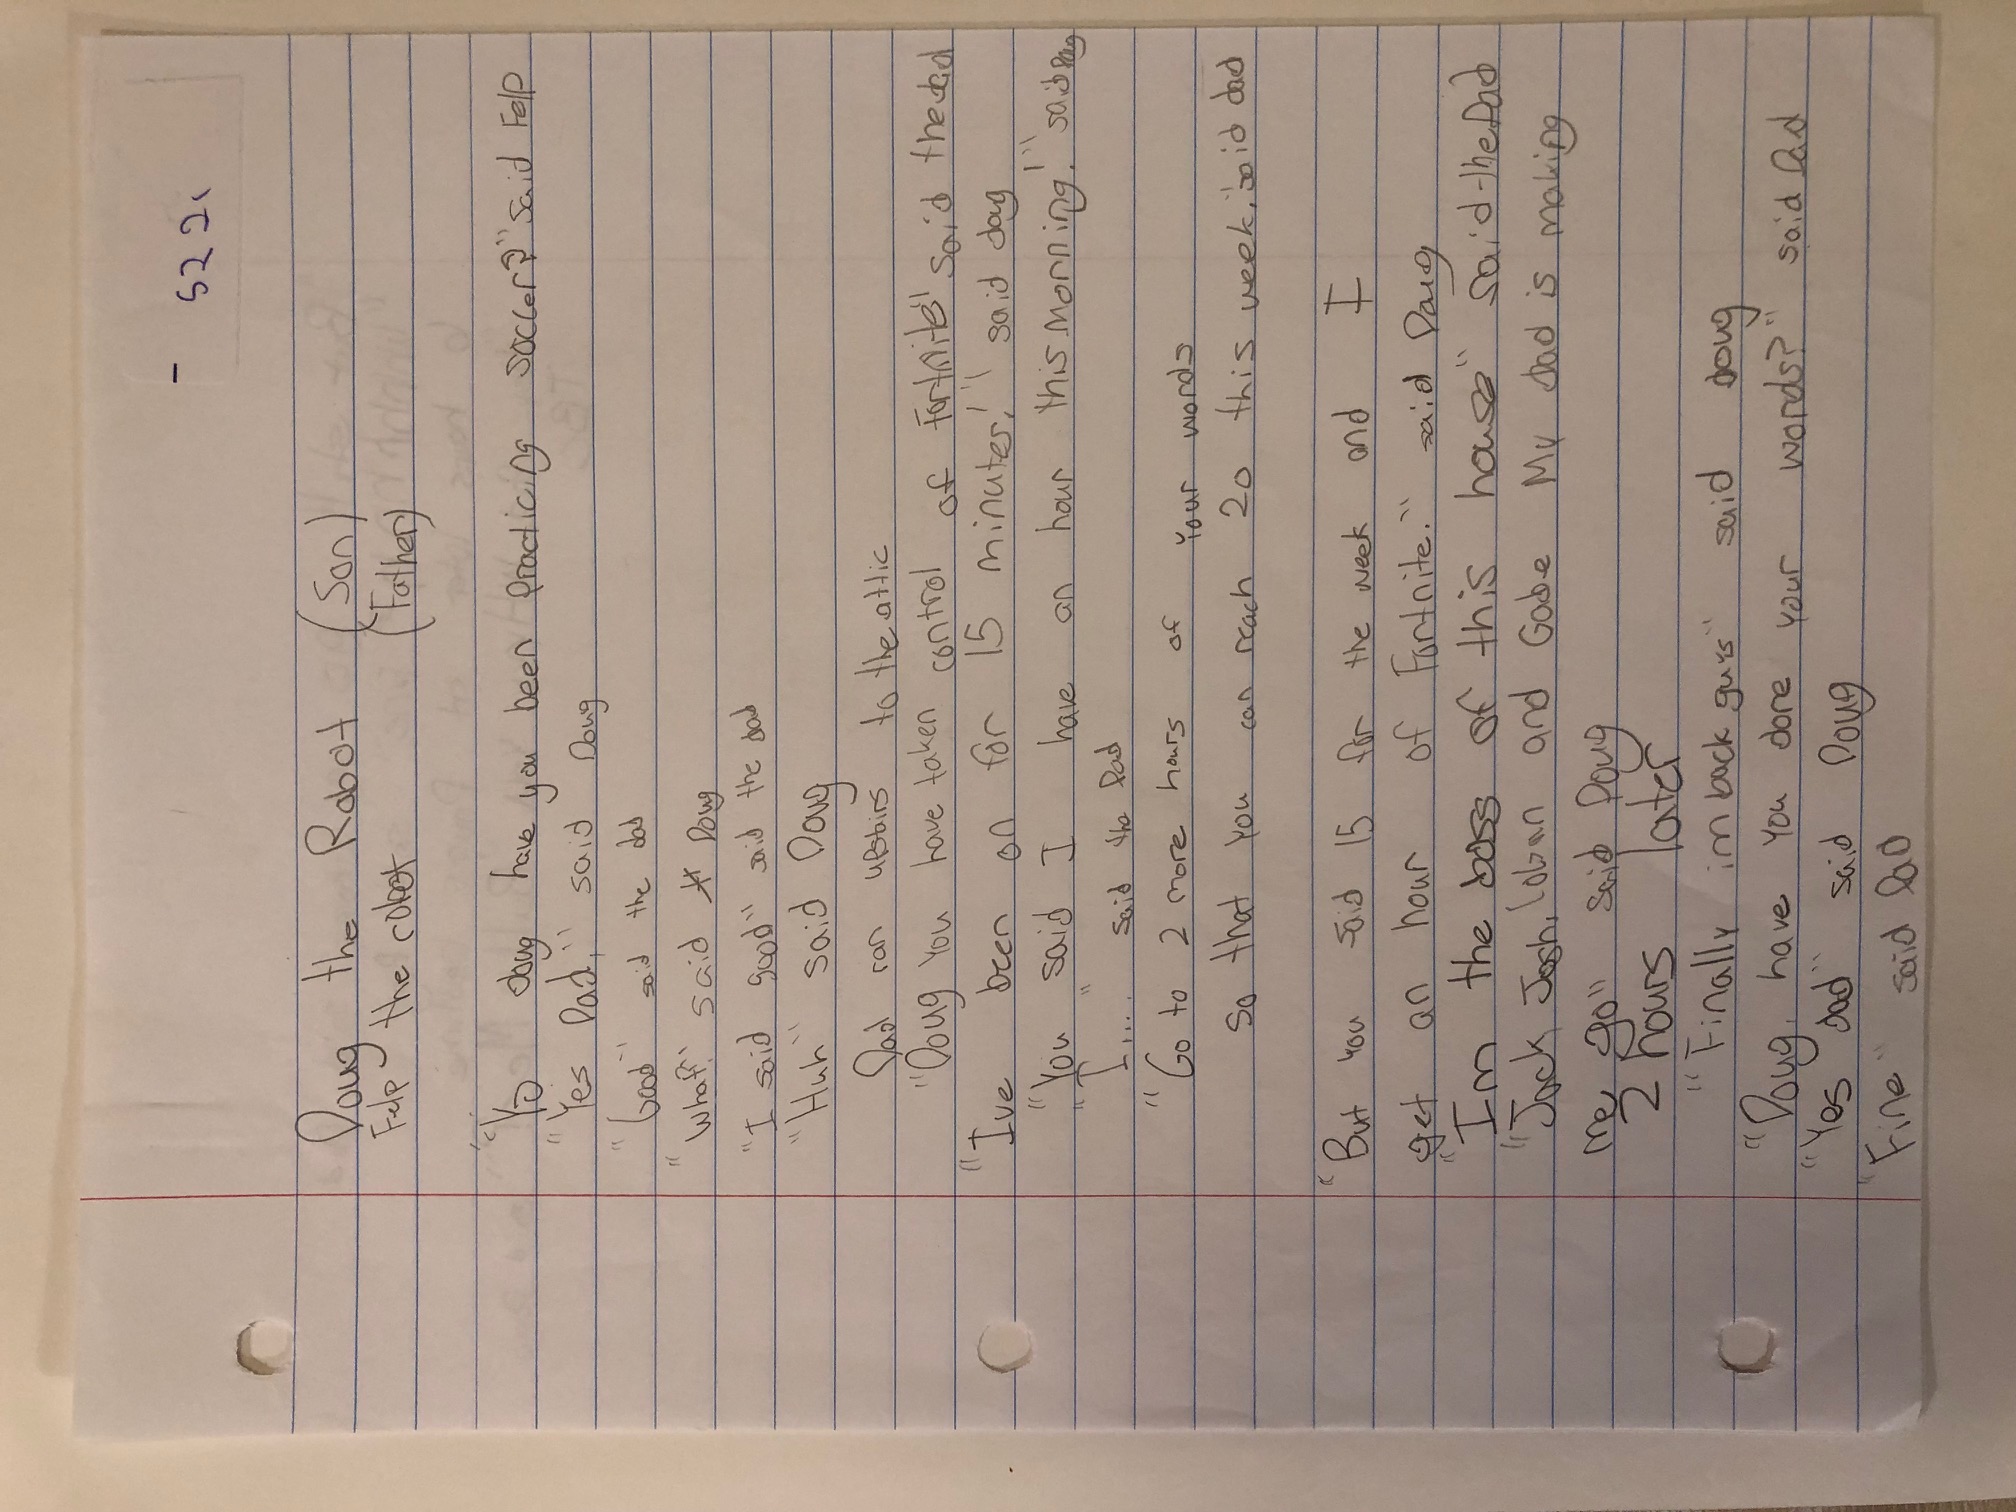 522
Doug the Robot (Son)
Felp the robot (Father)
"Yo doug have you been Practicing soccer?" said Felp
"Yes Dad," said Doug
"Good" said the dad
"What?" said Doug
"I said good" said the dad
"Huh" said Doug
Dad ran upstairs to the attic
"Doug You have taken control of Fortnite" said the dad
"Ive been on for 15 minutes!" said doug
"You said I have an hour this morning!" said Doug
"I...." said the Dad
"Go to 2 more hours of Your words
so that you can reach 20 this week." said dad
"But you said 15 for the week and I
get an hour of Fortnite." said Doug
"Im the boss of this house" said the Dad
"Jack, Josh, and Gabe My dad is making
me go" said Doug
2 hours later
"Finally im back guys" said doug
"Doug, have you done your words?" said Dad
"Yes dad" said Doug
"Fine" said Dad